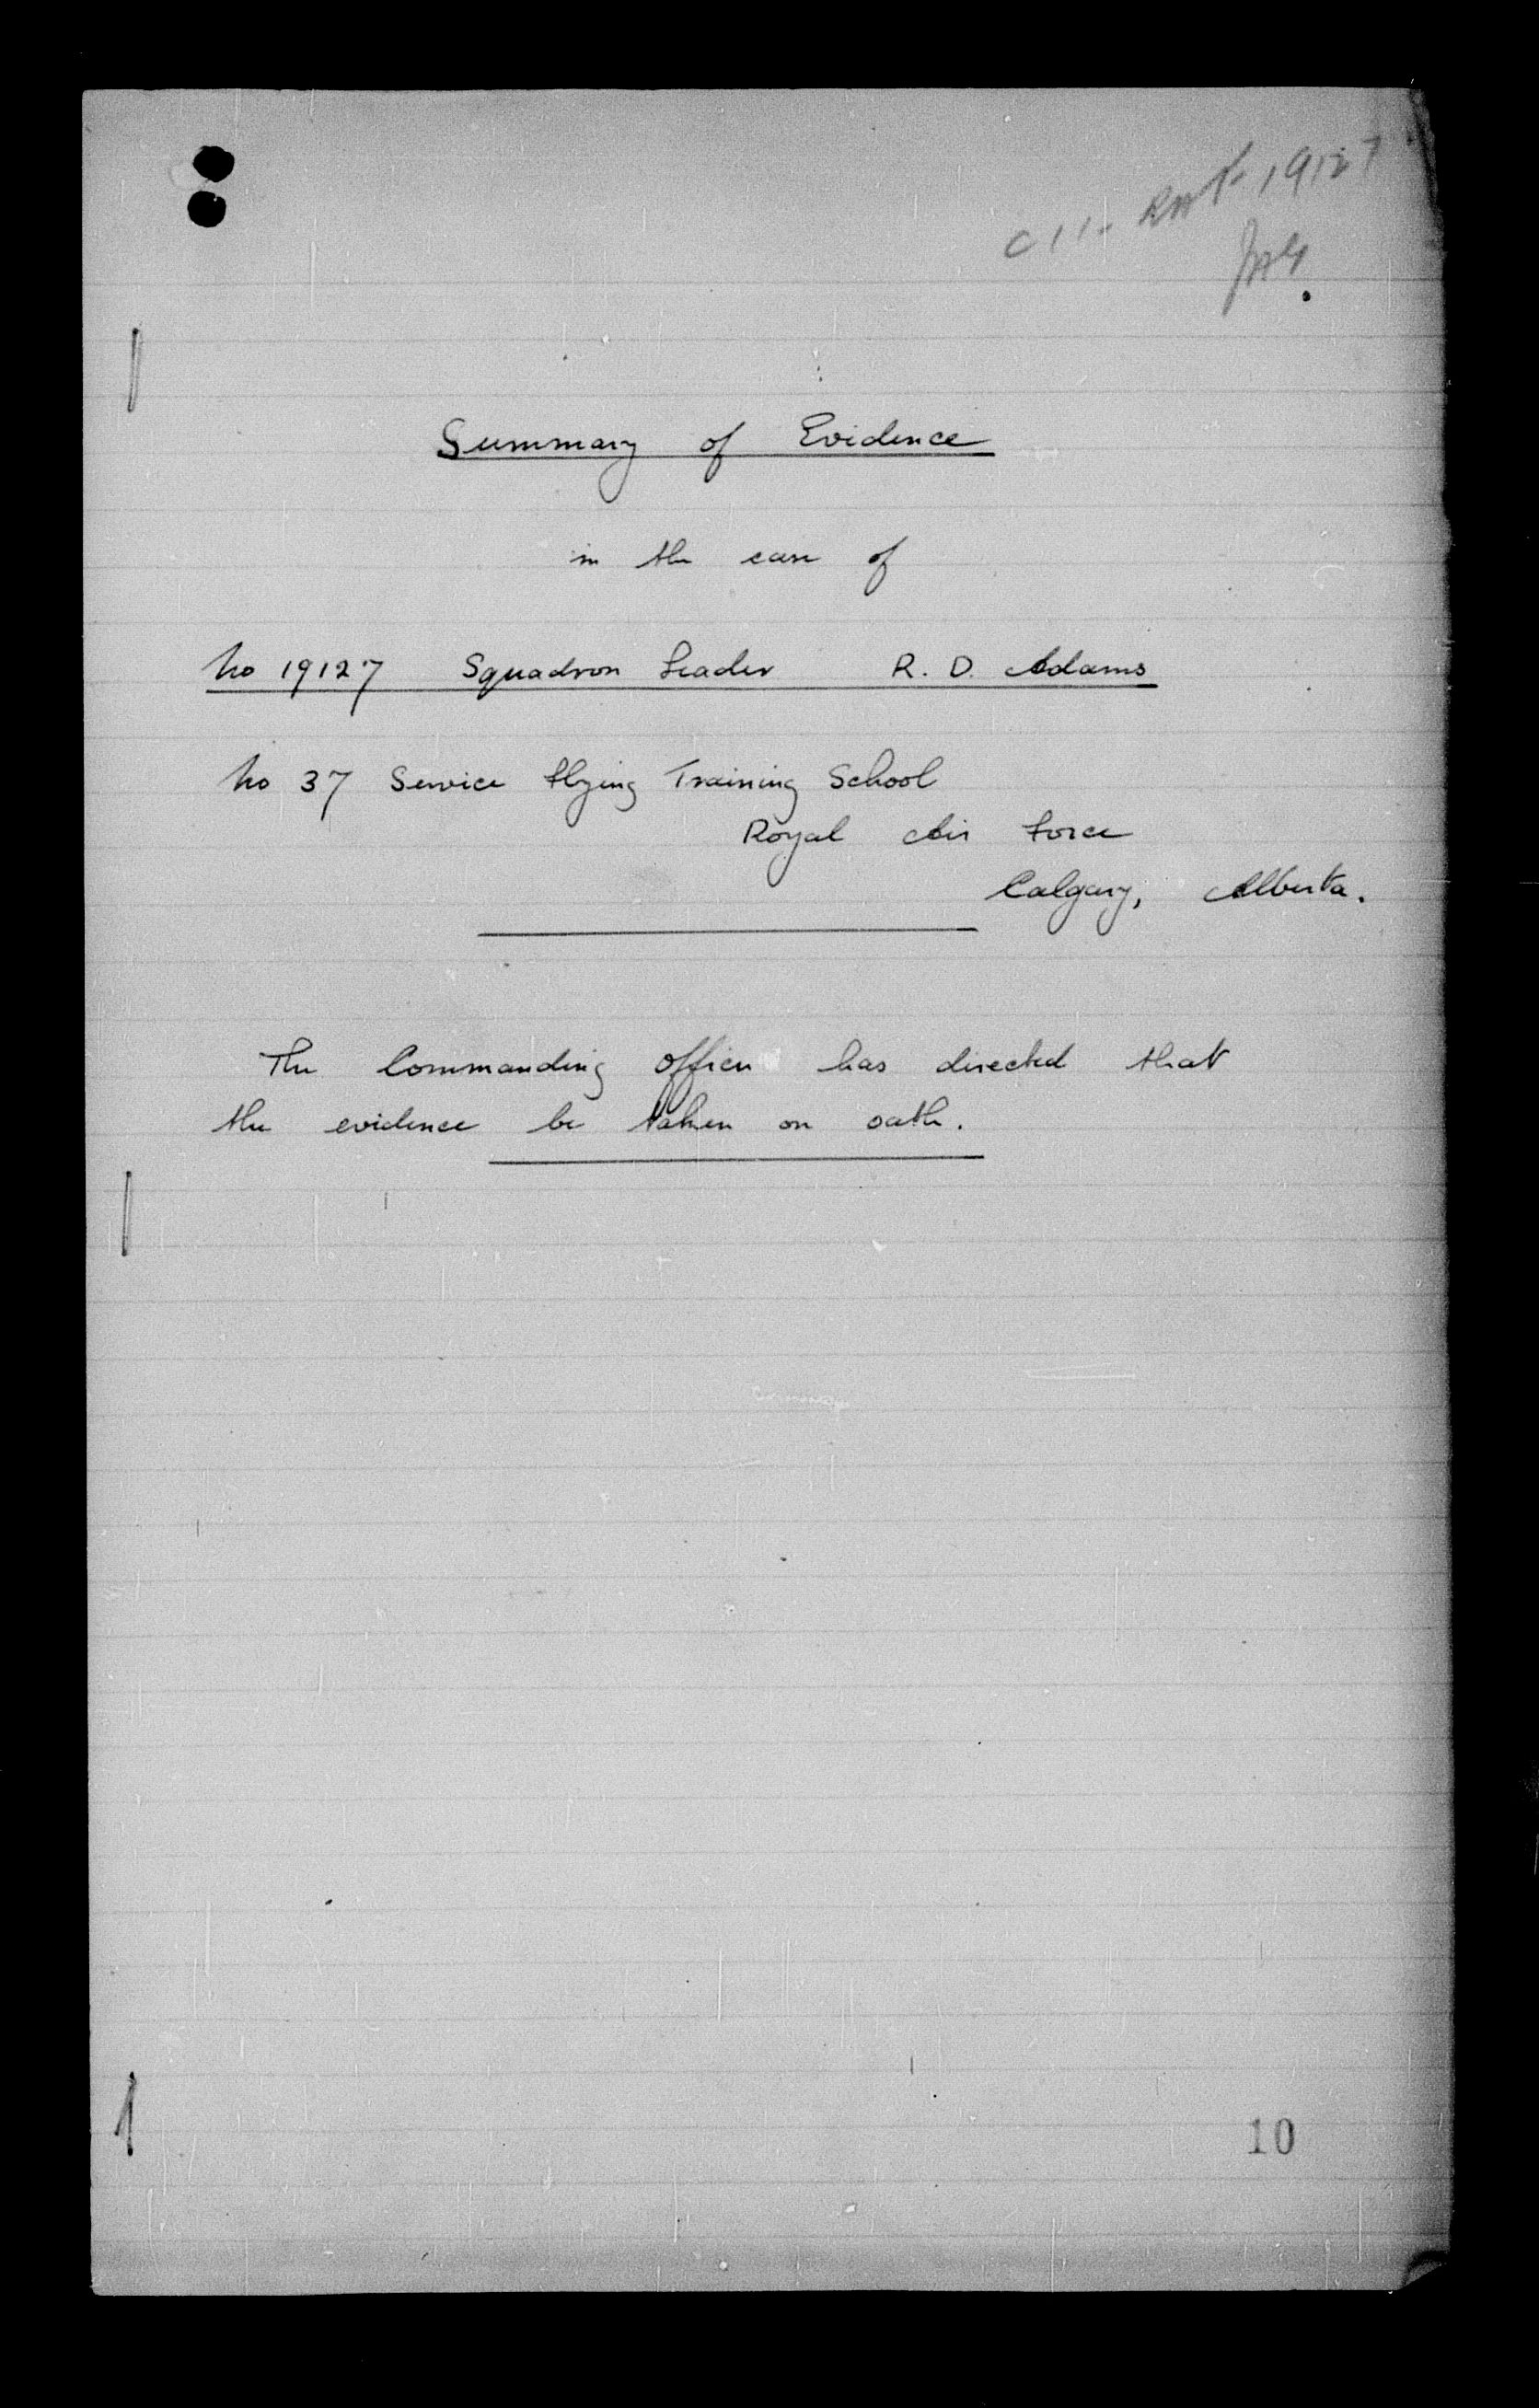 C11- RAF- 19127
Summary of Evidence
in the case of
No 19127 Squadron Leader R. D. Adams
No 37 Service Flying Training School
Royal Air Force
Calgary, Alberta.
The Commanding Officer has directed that
the evidence be taken on oath.
10